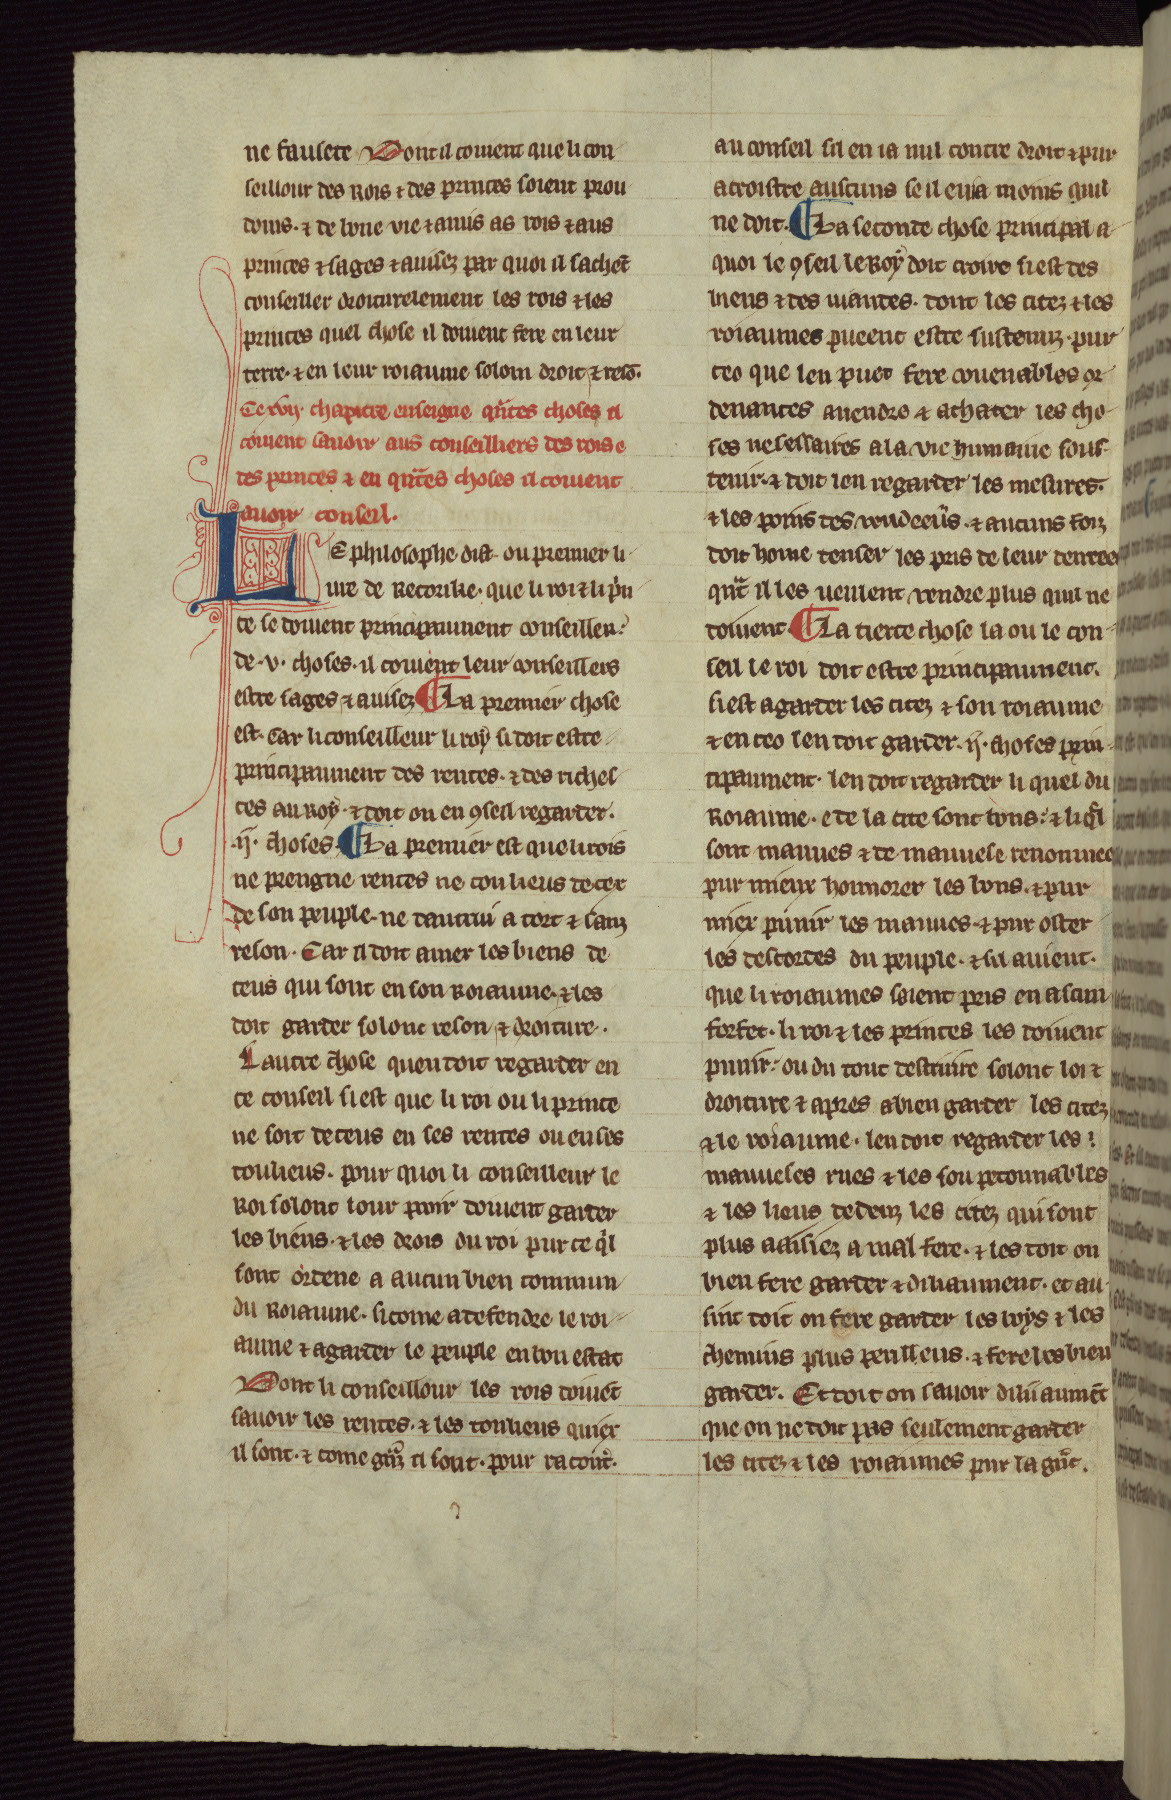 ne fausete Dont il covient que li con
seillour des Rois ⁊ des princes soient prou
doms. ⁊ de bone vie ⁊ amis as rois ⁊ aus
princes ⁊ sages ⁊ avisez par quoi il sachẽt
conseiller droiturelement les rois ⁊ les
princes quel chose il doivent fere en leur
terre. ⁊ en leur roiaume solom droit ⁊ resõ.
Ce xvij. chapitre enseigne qñtes choses il
covient savoir aus conseilliers des rois e
des princes ⁊ en qñtes choses il covient
avoir conseil.
LE philosophe dist ou premier li
vre de Retorike. que li roi ⁊ li pͥn
ce se doivent principaument conseiller.
de .v. choses. il covient leur conseillers
estre sages ⁊ avisez La premier chose
est. Car li conseilleur li roy si doit estre
principaument des rentes. ⁊ des riches
ces au Roy. ⁊ doit on en ꝯseil regarder.
.ij. choses. La premier est que li rois
ne prengne rentes ne touliens decer
de son peuple. ne dautrui a tort ⁊ sanz
reson. Car il doit amer les biens de
ceus qui sont en son Roiaume. ⁊ les
doit garder solonc reson ⁊ droiture.
Lautre chose quen doit regarder en
ce conseil si est que li roi ou li prince
ne soit deceus en ses rentes ou en ses
touliens. pour quoi li conseilleur le
Roi solonc lour poair doivent garder
les biens. ⁊ les drois du roi pur ce qͥl
sont ordene a aucun bien commun
du Roiaume. si come a defendre le roi
aume ⁊ a garder le peuple en bon estat
Dont li conseillour les rois doivẽt
savoir les rentes. ⁊ les touliens quier
il sont. ⁊ come gñz il sont. pour racont͛.
au conseil sil en ia nul contre droit ⁊ pur
acroistre auscuns se il en ia moins quil
ne doit. La seconde chose principal a
quoi le ꝯseil le Roy doit croire si est des
biens ⁊ des viandes. dont les citez ⁊ les
roiaumes pueent estre sustenuz. pur
ceo que len puet fere covenables or
denances a vendre ⁊ achater les cho
ses nesessaires a la vie humaine sous
tenir. ⁊ doit len regarder les mesures.
⁊ les poins des vendeeu͛s. ⁊ aucuns foiz
doit home tenser les pris de leur dentree
qñt il les veulent vendre plus quil ne
doivent La tierce chose la ou le con
seil le roi doit estre principaument.
si est a garder les citez ⁊ son roiaume
⁊ en ceo len doit garder .ij. choses prin
cipaument. len doit regarder li quel du
Roiaume. e de la cite sont bons. ⁊ li qͥl
sont mauves ⁊ de mauvese renommee
pur mieux honnorer les bons. ⁊ pur
miex punir les mauves. ⁊ pur oster
les descordes du peuple. ⁊ sil avient.
que li roiaumes soient pris en ascun
forfet. li roi ⁊ les princes les doivent
punir. ou du tout destruire solonc loi ⁊
droiture ⁊ apres a bien garder les citez
⁊ le roiaume. len doit regarder les
mauveses rues ⁊ les soupeconnables
⁊ les liens dedenz les citez qui sont
plus aaisiez a mal fere. ⁊ les doit on
bien fere garder ⁊ diliaument. et au
sint doit on fere garder les boys ⁊ les
chemins plus perilleus. ⁊ fere les bien
garder. Et doit on savoir diliiaumẽt
que on ne doit pas seulement garder
les citez ⁊ les roiaumes pur la gñt.